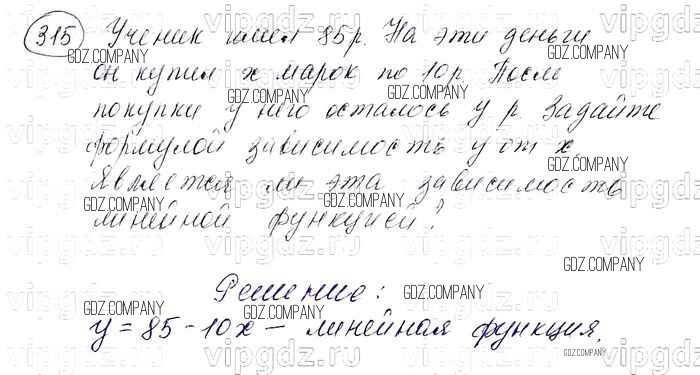 315 Ученик имел 85р. На эти деньги
он купил х марок по 10р. После
покупки у него осталось у р. Задайте
формулой зависимость у от х.
Является ли эта зависимость
линейной функцией?
Решение:
y = 85 - 10x — линейная функция.
GDZ.COMPANY
vipgdz.ru